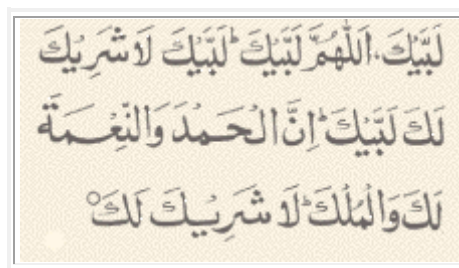 لَبَّيْكَ، اَللّٰهُمَّ لَبَّيْكَ ؕ لَبَّيْكَ لَا شَرِيْكَ
لَكَ لَبَّيْكَ ؕ اِنَّ الْحَمْدَ وَالنِّعْمَةَ
لَكَ وَالْمُلْكَ ؕ لَا شَرِيْكَ لَكَ ۝